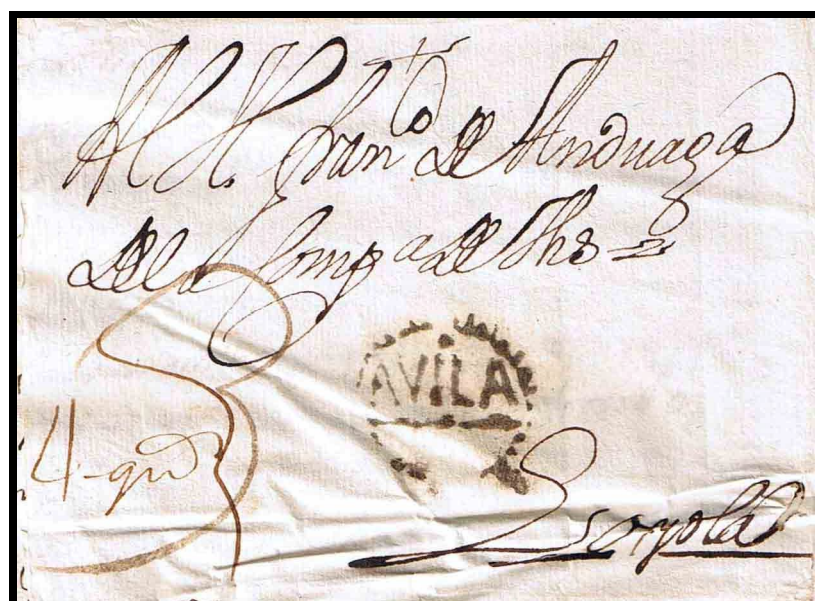 Al H. Fran.^co de Anduaga
de la Comp^a de Jhs
AVILA
4 q^tos
Loyola